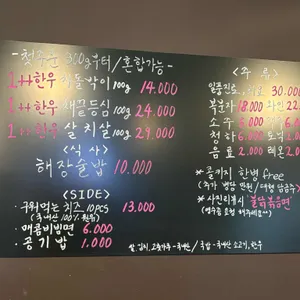 -첫주문 300g부터/혼합가능-
1++한우 차돌박이 100g 14.000
1++한우 채끝등심 100g 24.000
1++한우 살치살 100g 29.000
<식사>
해장술밥 10.000
<SIDE>
구워먹는 치즈 10pcs 13.000
(국내산 100% 원유)
매콤비빔면 6.000
공기밥 1.000
<주류>
일품진로 30.000
복분자 18.000
소주
청하
음료 2.000
*콜키지 한병 free
*사진리뷰시 "불닭볶음면"
쌀, 김치, 고춧가루-국내산